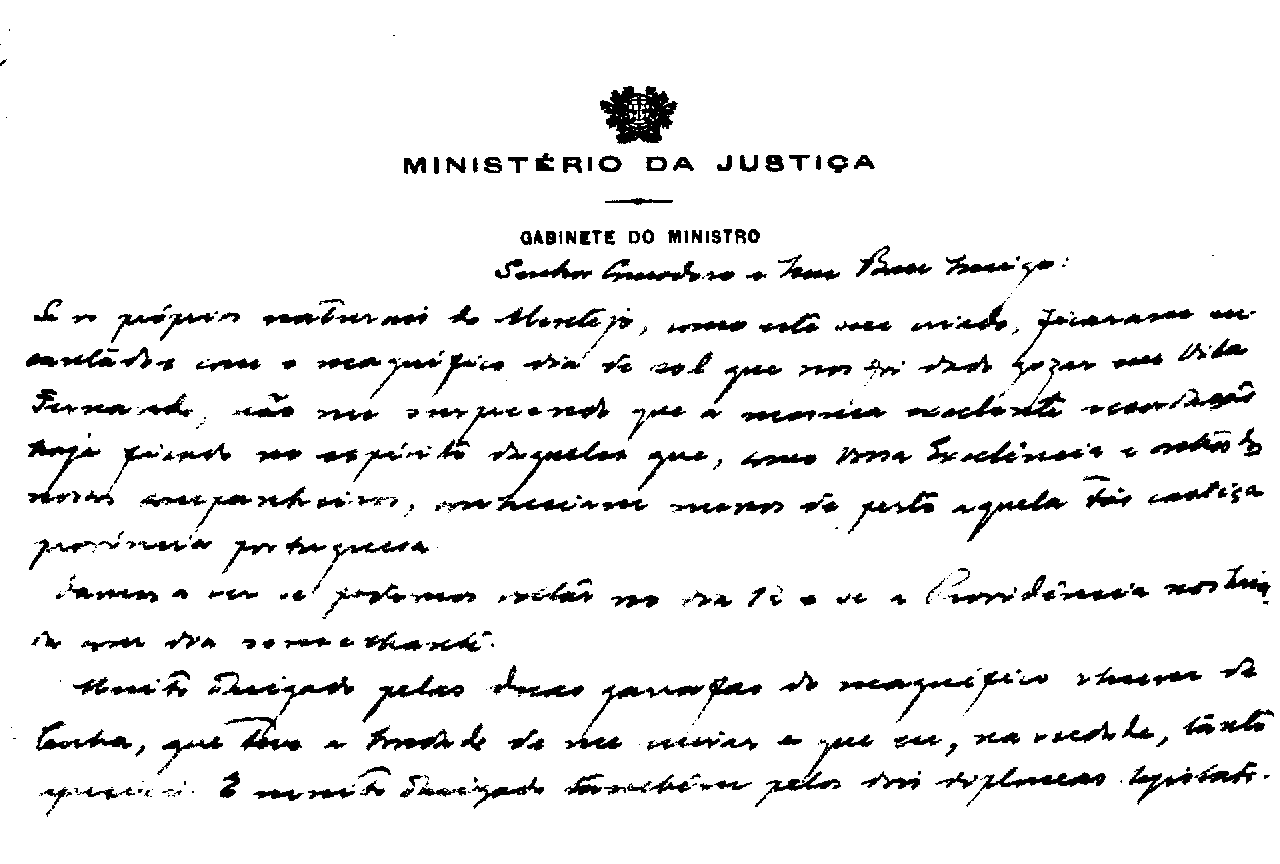 MINISTÉRIO DA JUSTIÇA
GABINETE DO MINISTRO
Senhor Comodoro e meu Bom Amigo:
Se os próprios naturais do Alentejo, como este seu criado, ficaram en-
cantados com o magnífico dia de sol que nos foi dado gozar em Vila
Fernando, não me surpreende que a mesma excelente recordação
haja ficado no espírito daqueles que, como Vossa Excelência e
nossos companheiros, conheciam menos de perto aquela tão castiça
província portuguesa.
Vamos a ver se podemos voltar no dia 12 e se a Providência nos
da um dia semelhante.
Muito obrigado pelas duas garrafas do magnífico rhum da
que teve a bondade de me enviar e que eu, na verdade, tanto
apreciei. E muito obrigado também pelos dois diplomas legislati-